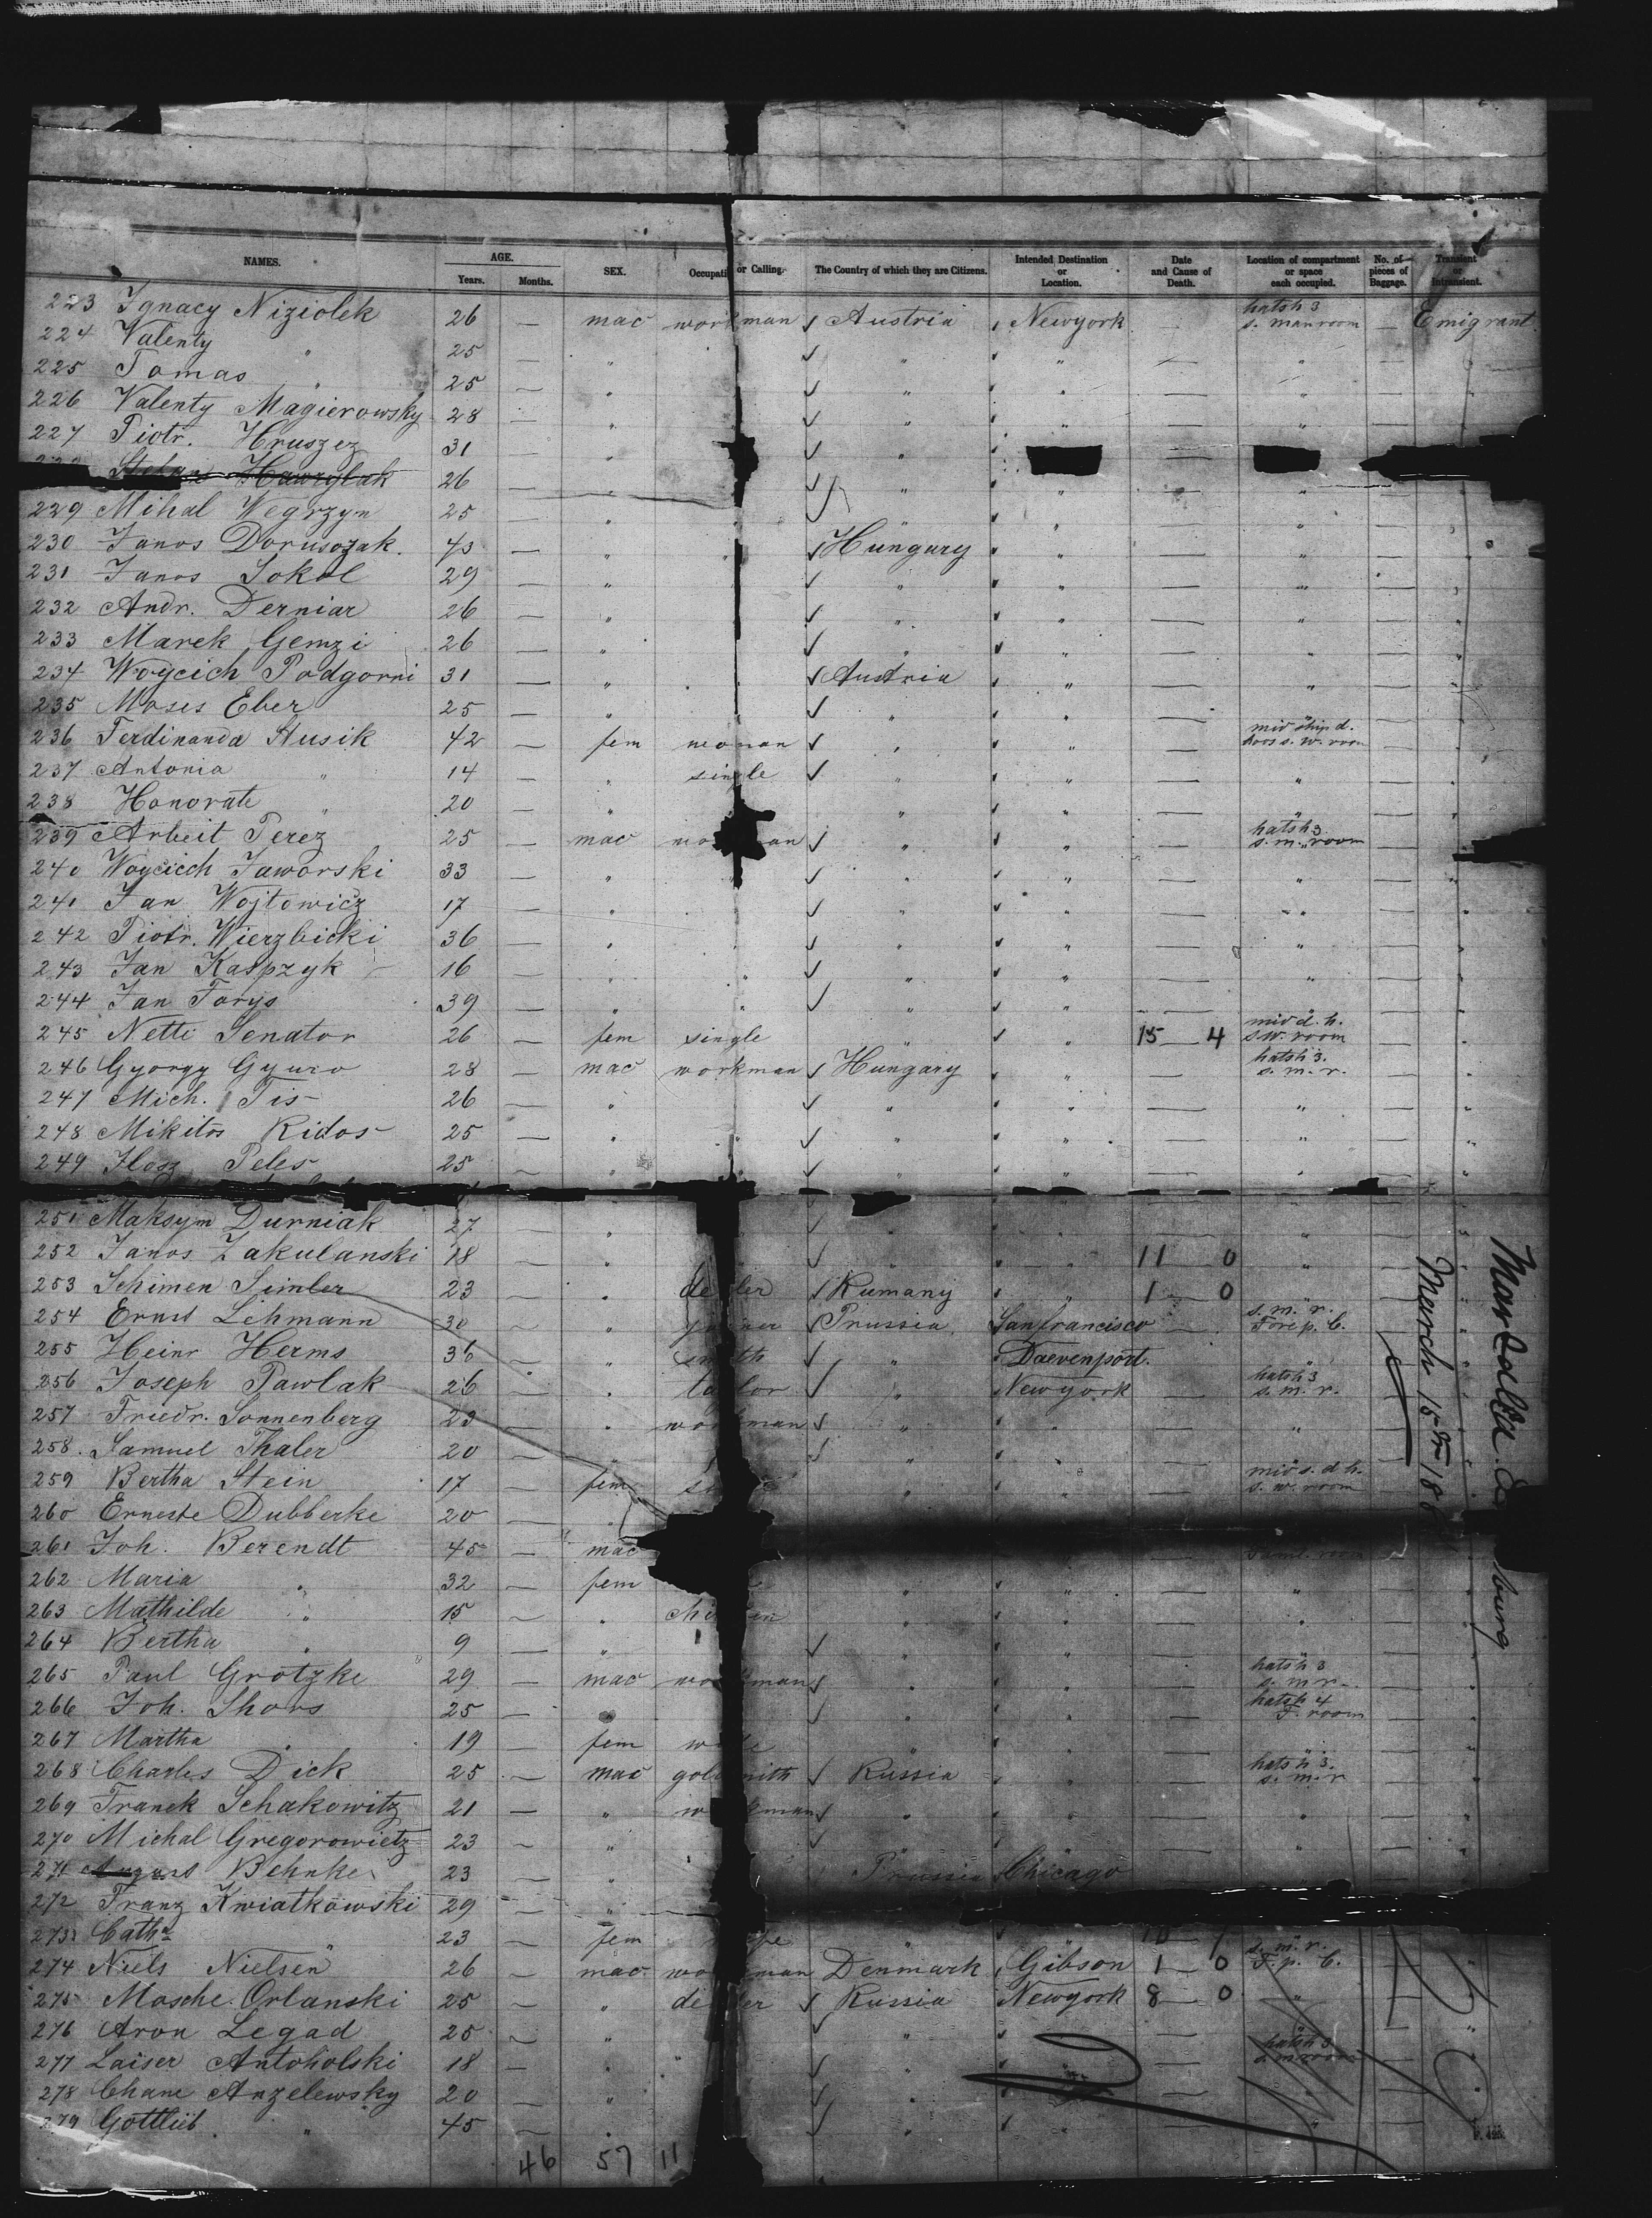 NAMES. AGE. Years. Months. SEX. Occupation or Calling. The Country of which they are Citizens. Intended Destination or Location. Date and Cause of Death. Location of compartment or space each occupied. No. of pieces of Baggage. Transient or Intransient.
223 Ignacy Niziolek 26 — mac workman Austria Newyork hatsh 3 s. man room — Emigrant
224 Valenty " 25 — " " " — " —
225 Tomas " 25 — " " " — " —
226 Valenty Magierowsky 28 — " " " — " —
227 Piotr. Hruszez 31 — " " —
Hawrylak 26 — " " " — " —
229 Mihal Wegrzyn 25 — " " " — " —
230 Janos Dorusozak. 43 — " " Hungary " — " —
231 Janos Sokol 29 — " " " — " —
232 Andr. Derniar 26 — " " " — " —
233 Marek Gemzi 26 — " " " — " —
234 Woycich Podgorni 31 — " Austria " — " —
235 Moses Eber 25 — " " " — " —
236 Ferdinanda Husik 42 — fem woman " " — mid ship d. s. w. room —
237 Antonia " 14 — " single " " — " —
238 Honorate " 20 — " " " — " —
239 Arbeit Perez 25 — mac workman " " — hatsh 3 s. m. room —
240 Woycicch Jaworski 33 — " " " — " —
241 Jan Wojtowicz 17 — " " " — " —
242 Piotr. Wierzbicki 36 — " " " — " —
243 Jan Kaspzyk 16 — " " " " — " —
244 Jan Forys 39 — " " " " — " —
245 Netti Senator 26 — fem single " " 15 — 4 mid d. h. s w. room —
246 Gyorgy Gyuro 28 — mac workman Hungary " — hatsh 3. s. m. r. —
247 Mich. Tis 26 — " " " — " —
248 Mikitos Ridos 25 — " " " — " —
249 Ilosz Peles 25 — " " " — " —
251 Maksym Durniak 27 — " " " — " —
252 Janos Zakulanski 18 — " " " " 11 0 " —
253 Schimen Simler 23 — " dealer Rumany " 1 — 0 " —
254 Ernst Lehmann 30 — " Prussia Sanfrancisco — s. m. r. Fore p. C. —
255 Heinr Herms 36 — " smith " Daevenport. — " —
256 Joseph Pawlak 26 — " taylor " Newyork — hatsh 3 s. m. r. —
257 Friedr. Sonnenberg 23 — " workman " " — " —
258. Samuel Thaler 20 — " " " — " —
259 Bertha Stein 17 — fem " " — mid s. d h. s. w. room —
260 Erneste Dubberke 20 — "
261 Joh. Berendt 45 — mac " — Faml. room —
262 Maria " 32 — fem " " — " —
263 Mathilde " 15 — " children " " — " —
264 Bertha " 9 — " " " — " —
265 Paul Grotzke 29 — mac workman " " — hatsh 3 s. m r. —
266 Joh. Shors 25 — " " " — hatsh 4 F. room —
267 Martha " 19 — fem wife " " — " —
268 Charles Dick 25 — mac goldsmith Russia " — hatsh 3. s. m. r —
269 Franek Schakowitz 21 — " workman " " — " —
270 Michal Gregorowietz 23 — " " " — " —
271 August Behnke 23 — " Prussia Chicago
272 Franz Kwiatkowski 29 — "
273 Cath " 23 — fem wife " " 10
274 Niels Nielsen 26 — mac workman Denmark Gibson 1 — 0 s. m. r. F. p. C. —
275 Mosche Orlanski 25 — " dealer Russia Newyork 8 — 0 " —
276 Aron Legad 25 — " " " — " —
277 Laiser Antoholski 18 — " " " — hatsh 3 s. m room —
278 Chane Anzelewsky 20 — " " " — " —
279 Gottlieb " 45 — " " " — " —
46 57 11
March 15th 18
burg